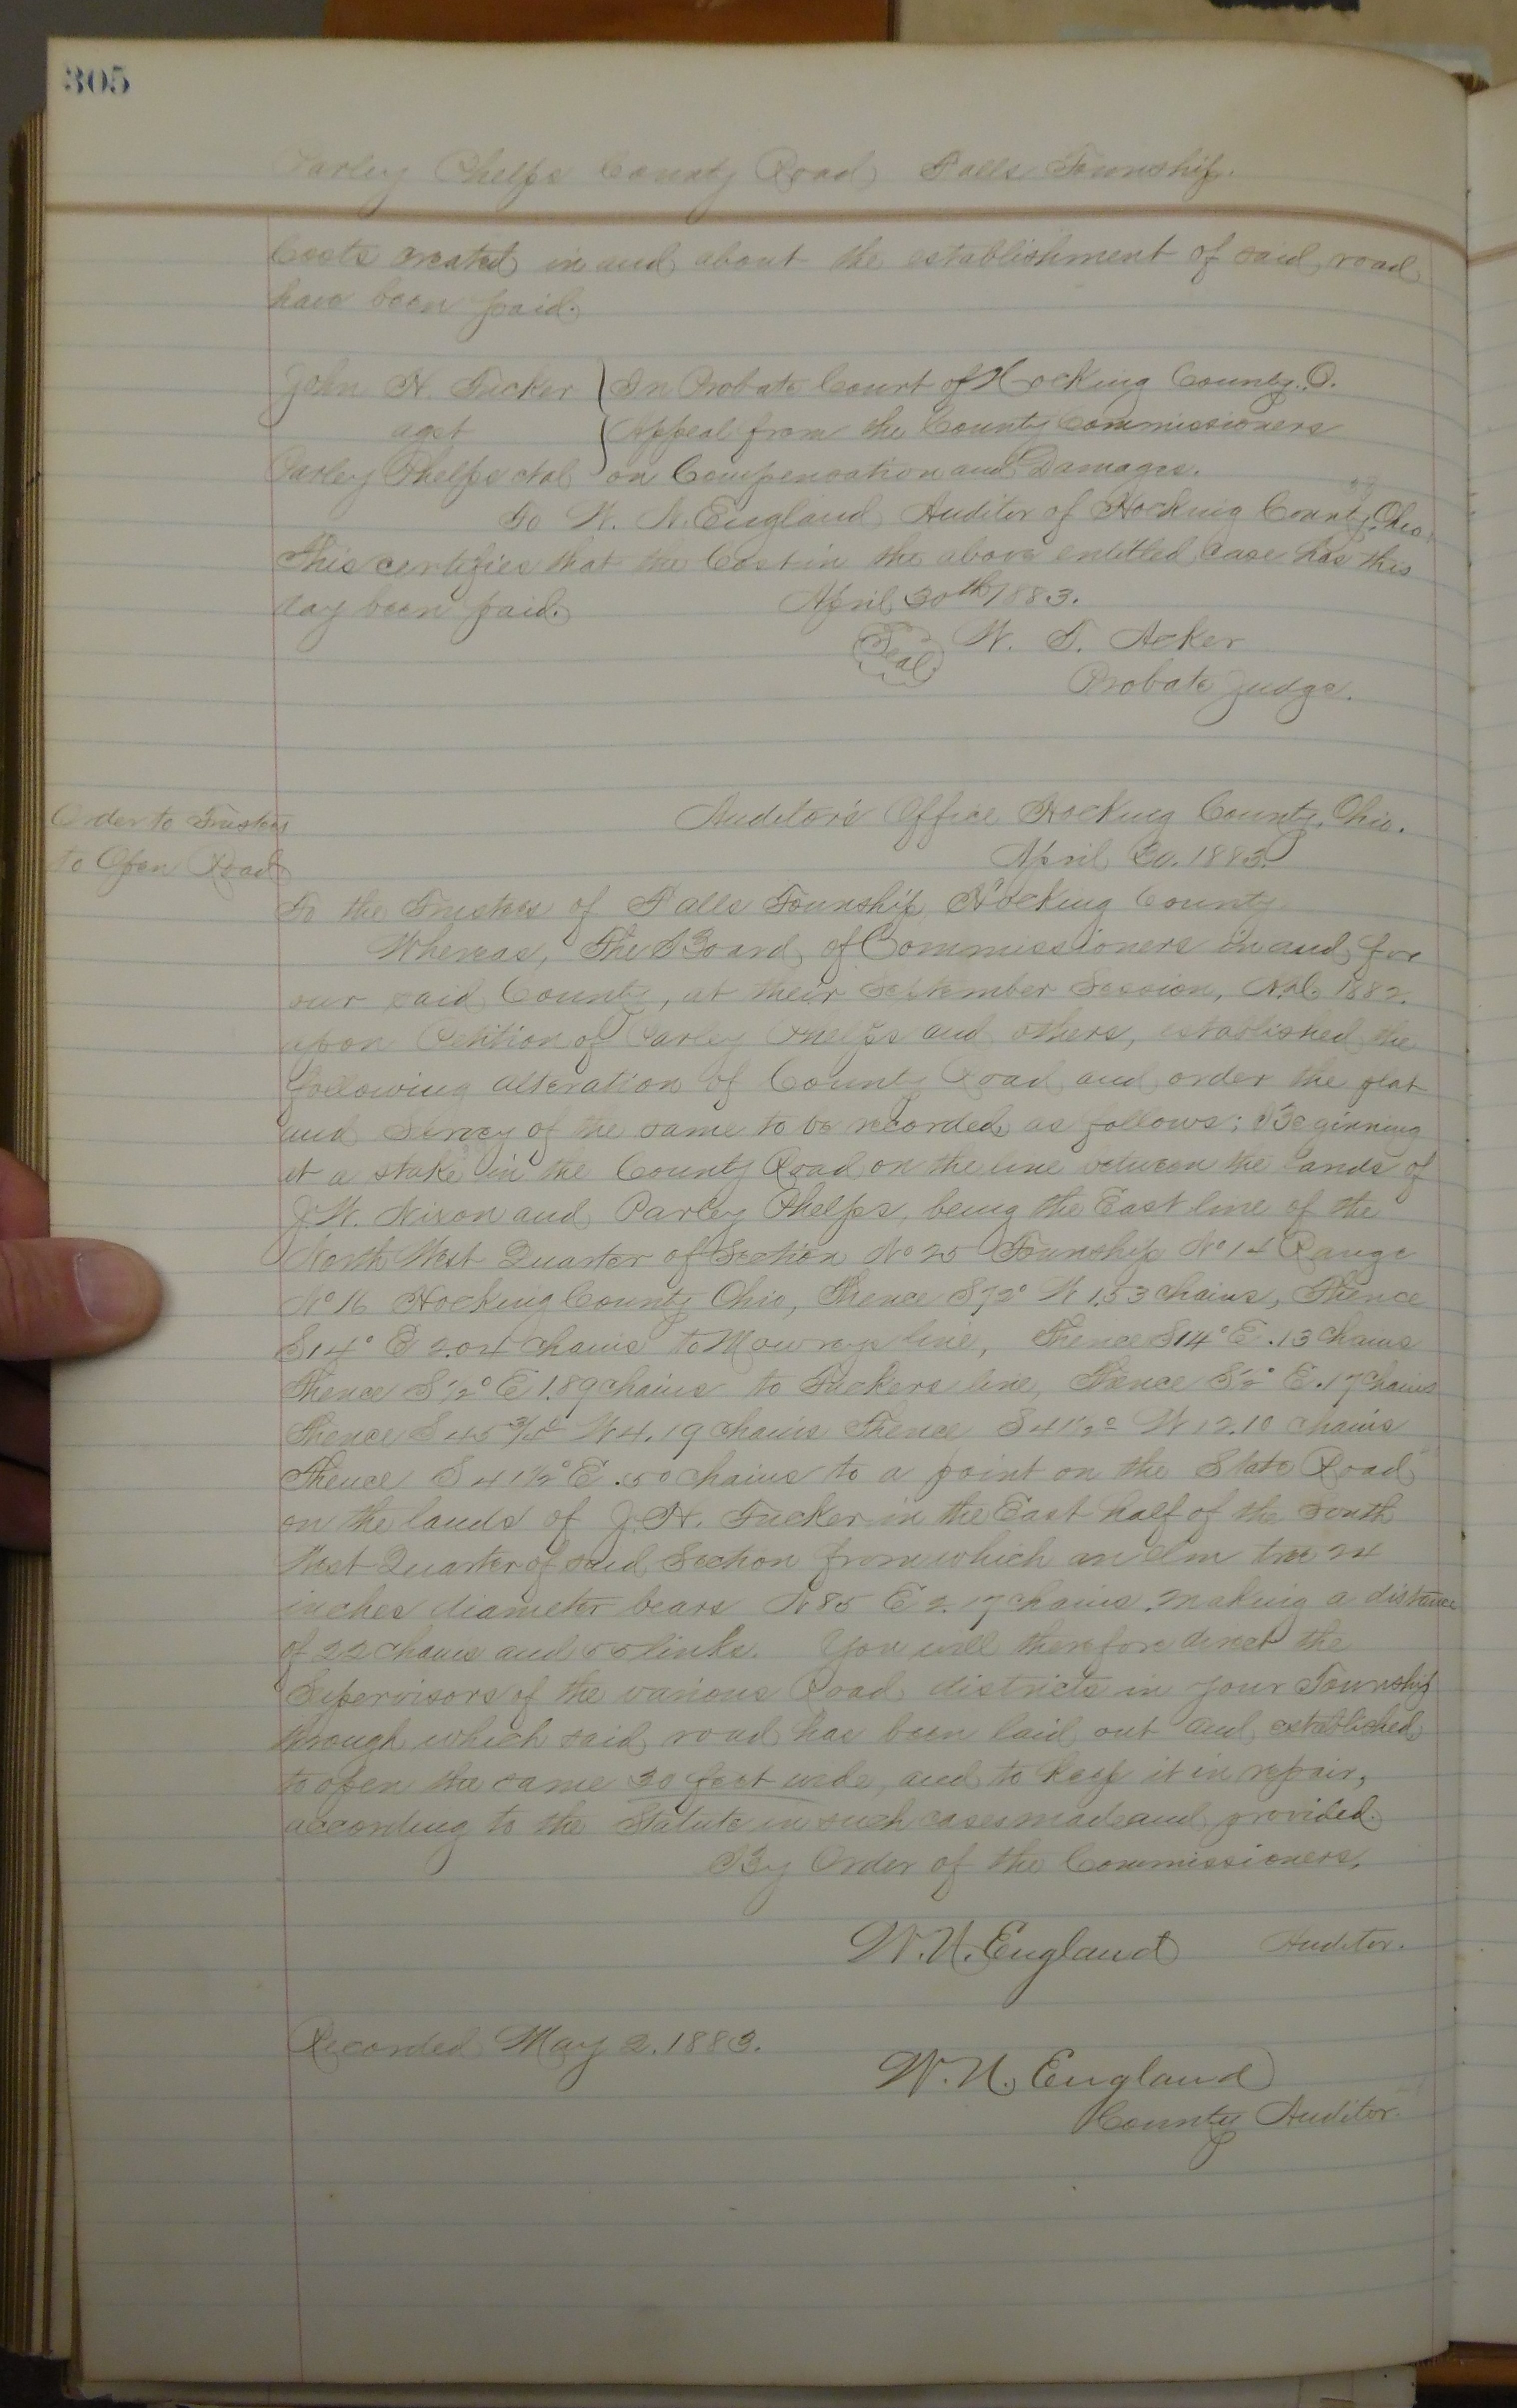 305
Parley Phelps County Road Falls Township.
Costs created in and about the establishment of said road
have been paid.
John N. Tucker } In Probate Court of Hocking County, O.
agst } Appeal from the County Commissioners
Parley Phelps etal } on Compensation and Damages.
To W. N. England Auditor of Hocking County, Ohio.
This certifies that the Cost in the above entitled case has this
day been paid. April 30th 1883.
Seal W. T. Acker
Probate Judge.
Order to Trustees
to Open Road
Auditor's Office Hocking County, Ohio.
April 30. 1883.
To the Trustees of Falls Township Hocking County
Whereas, The Board of Commissioners in and for
our said County, at their September Session, A.D. 1882.
upon Petition of Parley Phelps and others, established the
following alteration of County Road and order the plat
and Survey of the same to be recorded as follows; Beginning
at a stake in the County Road on the line between the lands of
J. W. Nixon and Parley Phelps, being the East line of the
North West Quarter of Section No 25 Township No 14 Range
No 16 Hocking County Ohio, Thence S 72° W 1.53 chains, Thence
S 14° E 2.04 chains to Mowrys line, Thence S 14° E .13 chains
Thence S ½° E 1.89 chains to Tuckers line, Thence S ½° E .17 chains
Thence S 45 3/4° W 4.19 chains Thence S 41½° W 12.10 chains
Thence S 41½° E .50 chains to a point on the State Road
on the lands of J. N. Tucker in the East half of the South
West Quarter of said Section from which an elm tree 24
inches diameter bears N 85 E 2.17 chains. making a distance
of 22 chains and 55 links. You will therefore direct the
Supervisors of the various Road districts in your Township
through which said road has been laid out and established
to open the same 30 feet wide, and to keep it in repair,
according to the Statute in such cases made and provided.
By Order of the Commissioners,
W. N. England Auditor.
Recorded May 2. 1883.
W. N. England
County Auditor.